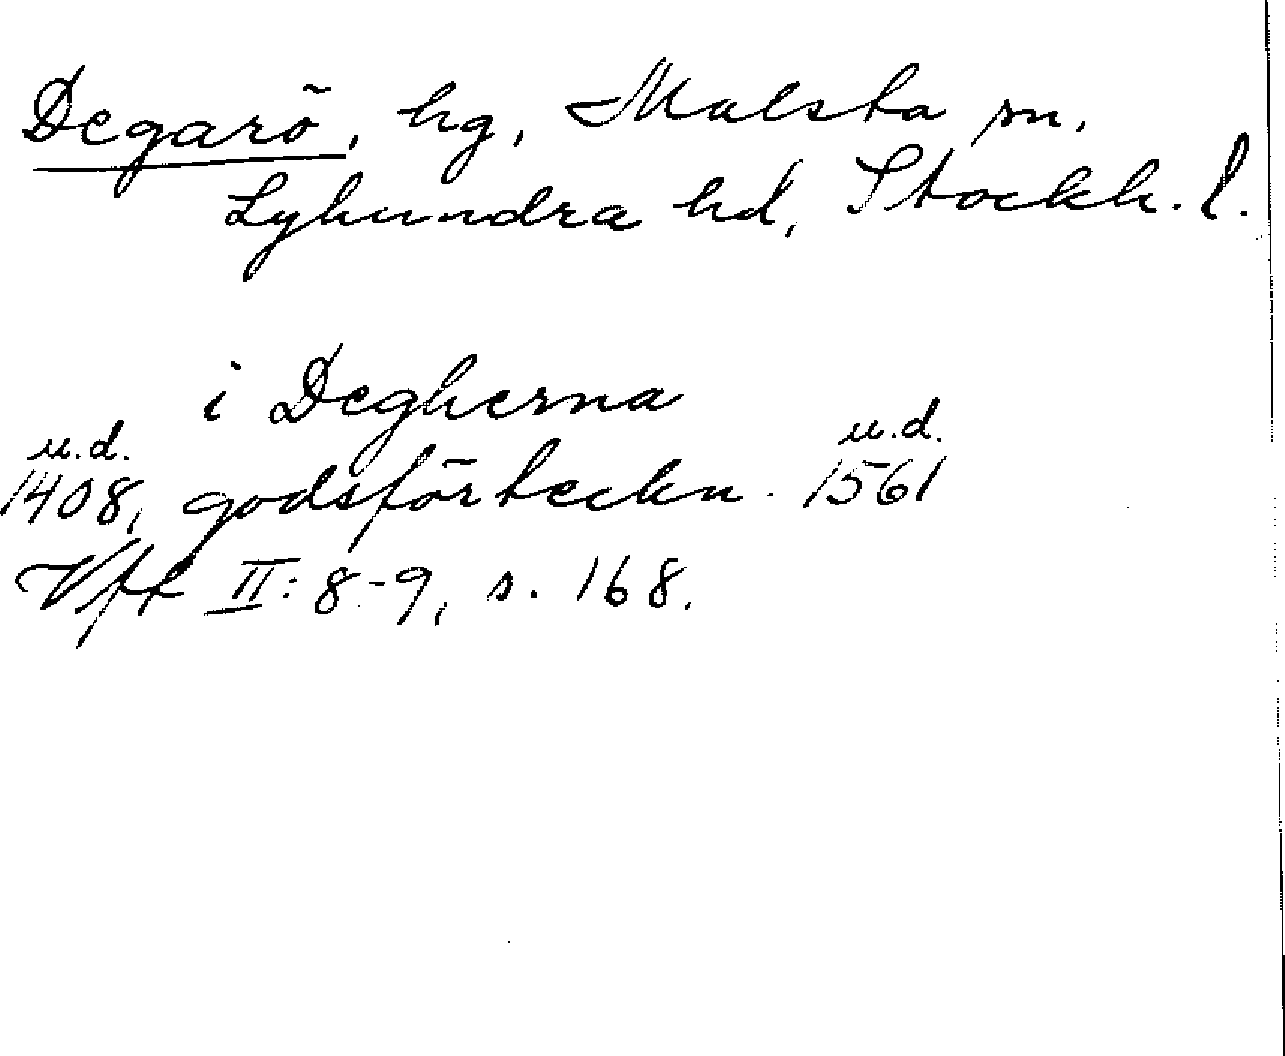 Degarö, hg, Malsta sn,
Lyhundra hd, Stockh. l.
i Degherna
u.d. u.d.
1408, godsförteckn. 1561
Vff II: 8-9, s. 168.